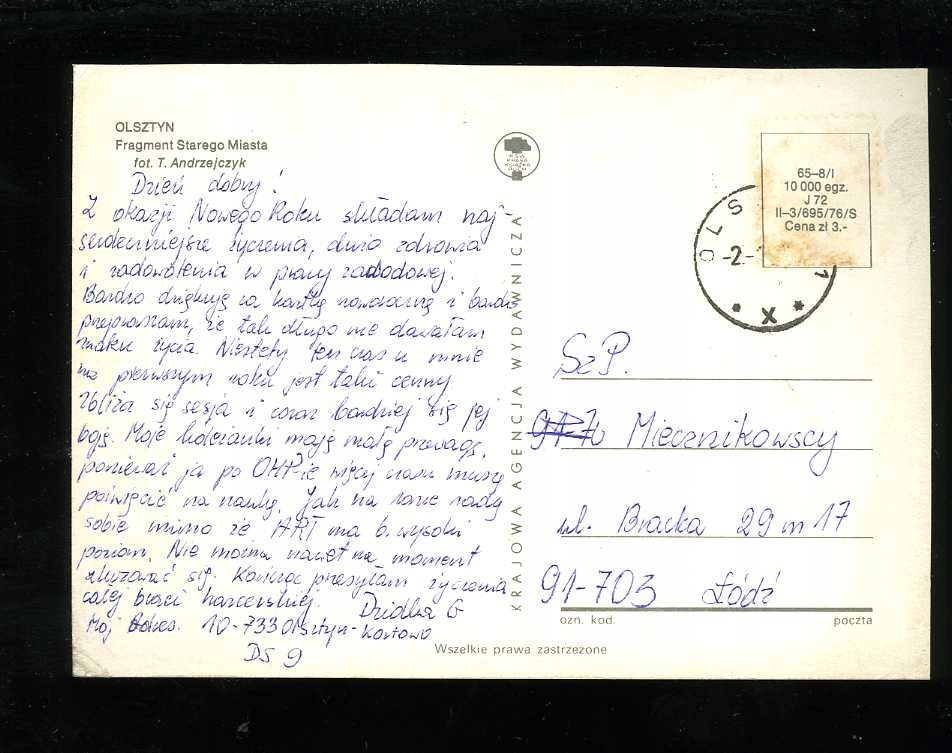 OLSZTYN
Fragment Starego Miasta
fot. T. Andrzejczyk
Dzień dobry!
Z okazji Nowego Roku składam naj-
serdeczniejsze życzenia, dużo zdrowia
i zadowolenia w pracy zawodowej.
Bardzo dziękuję za kartkę noworoczną i bardzo
przepraszam, że tak długo nie dawałam
znaku życia. Niestety ten czas u mnie
na pierwszym roku jest taki cenny.
Zbliża się sesja i coraz bardziej się jej
boję. Moje koleżanki mają małą przewagę,
ponieważ ja po OHP-ie więcej czasu muszę
poświęcić na naukę. Jak na razie radzę
sobie mimo że ART ma b. wysoki
poziom. Nie można nawet na moment
się. Kończąc przesyłam życzenia
całej braci harcerskiej. Dzidka G
Mój adres. 10-733 Olsztyn-Kortowo
DS 9
KRAJOWA AGENCJA WYDAWNICZA
RSW
PRASA
KSIĄŻKA
RUCH
OLS
-2.-
1
* X *
65–8/I
10 000 egz.
J 72
II–3/695/76/S
Cena zł 3.-
Sz P.
Miecznikowscy
ul. Bracka 29 m 17
91-703 Łódź
ozn. kod. poczta
Wszelkie prawa zastrzeżone